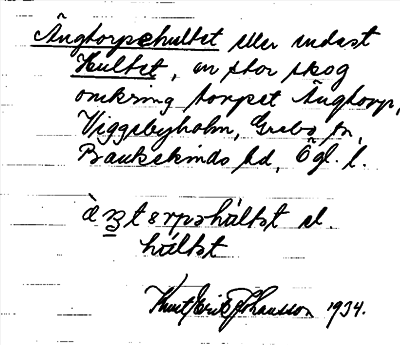 Ängtorpshultet eller endast
Hultet, en stor skog
omkring torpet Ängtorp,
Viggebyholm, Grebo sn,
Bankekinds hd, Ögl. l.
hùltet
Knut Erik Johansson 1934.